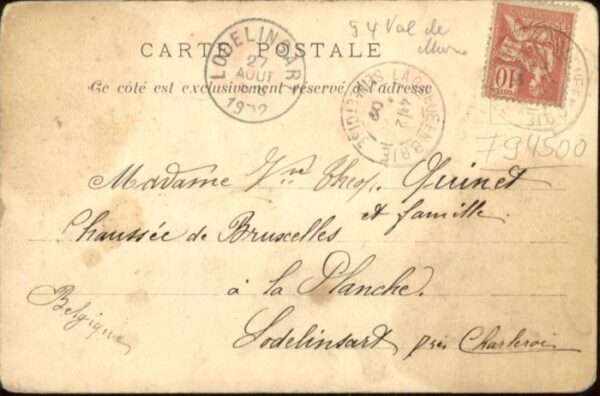 94 Val de
Marne
CARTE POSTALE
Ce côté est exclusivement réservé à l'adresse
LODELINSART
27
AOUT
1902
LA QUEUE EN BRIE
SEINE-ET-OISE
10
794500
Madame Vve Theop. Quinet
et famille
Chaussée de Bruxelles
à la Planche.
Lodelinsart près Charleroi
Belgique